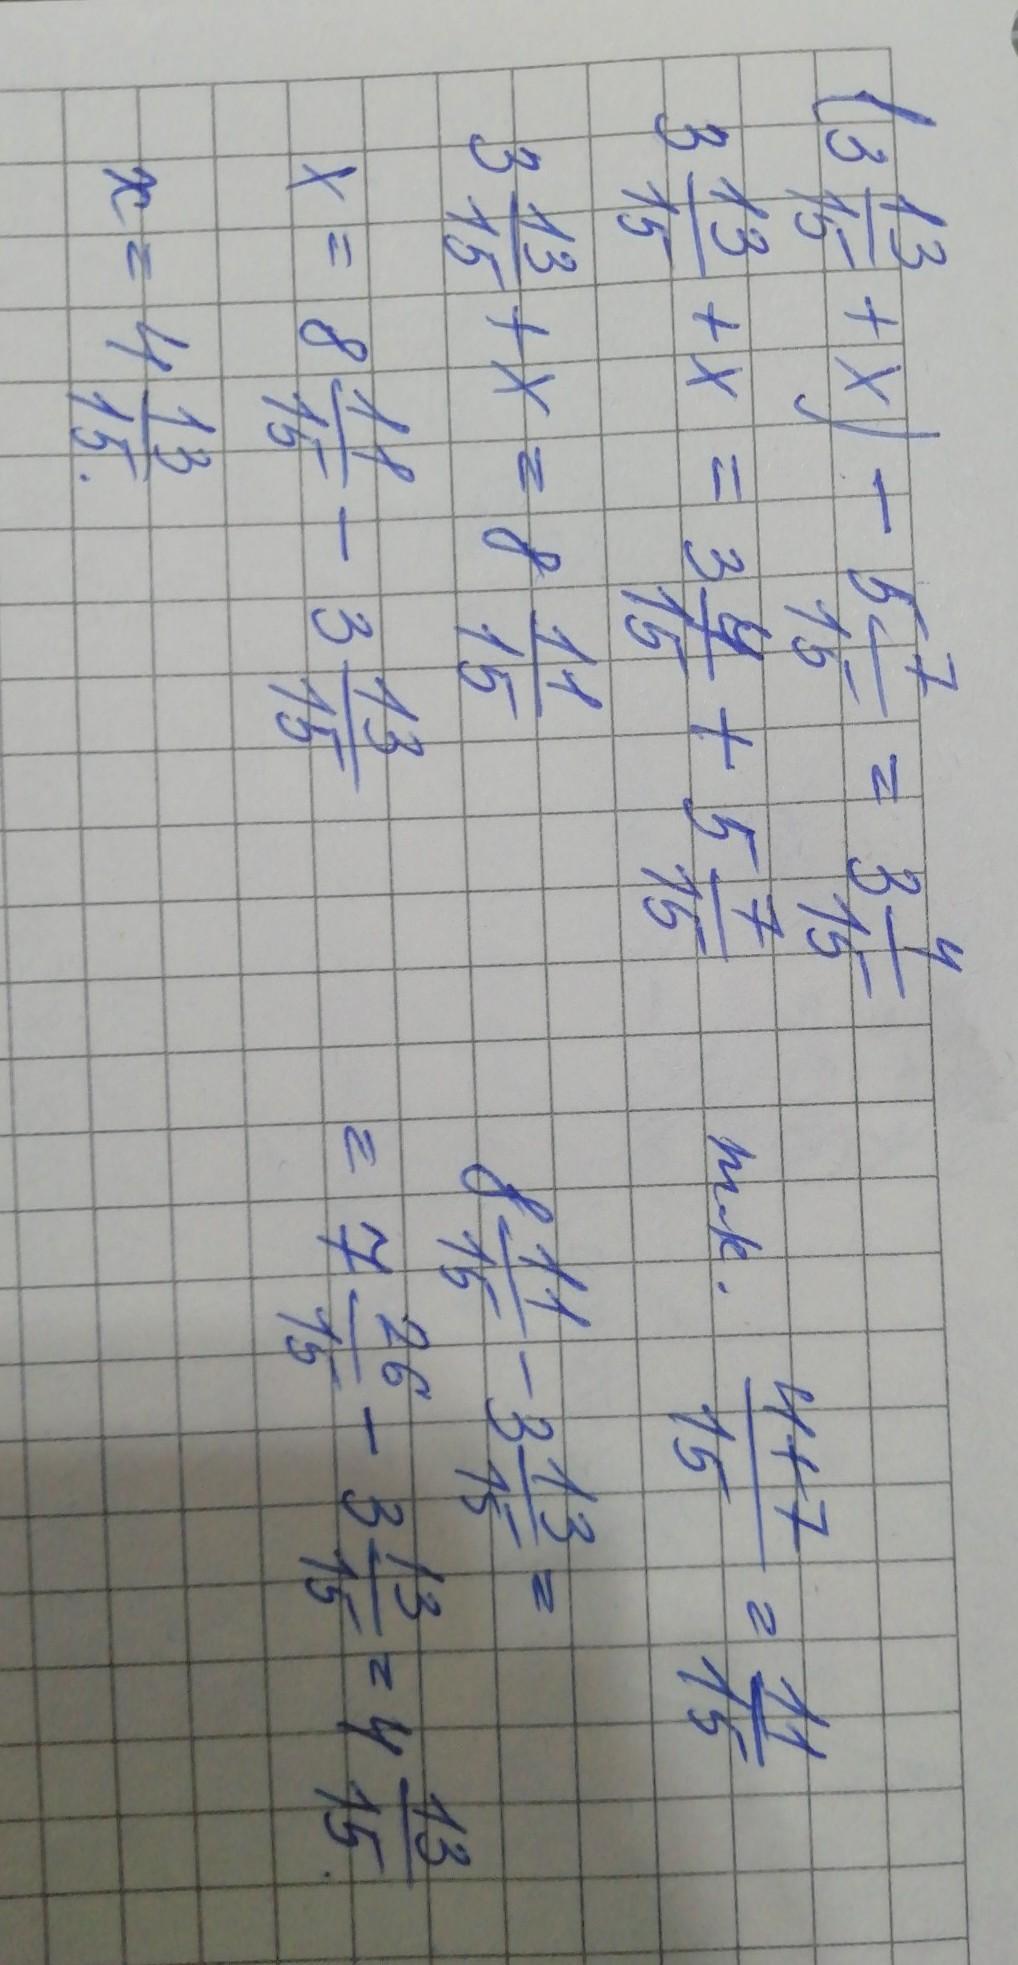 (3 13/15 + x) - 5 7/15 = 3 4/15
3 13/15 + x = 3 4/15 + 5 7/15 т.к. (4+7)/15 = 11/15
3 13/15 + x = 8 11/15 8 11/15 - 3 13/15 =
x = 8 11/15 - 3 13/15 = 7 26/15 - 3 13/15 = 4 13/15.
x = 4 13/15.